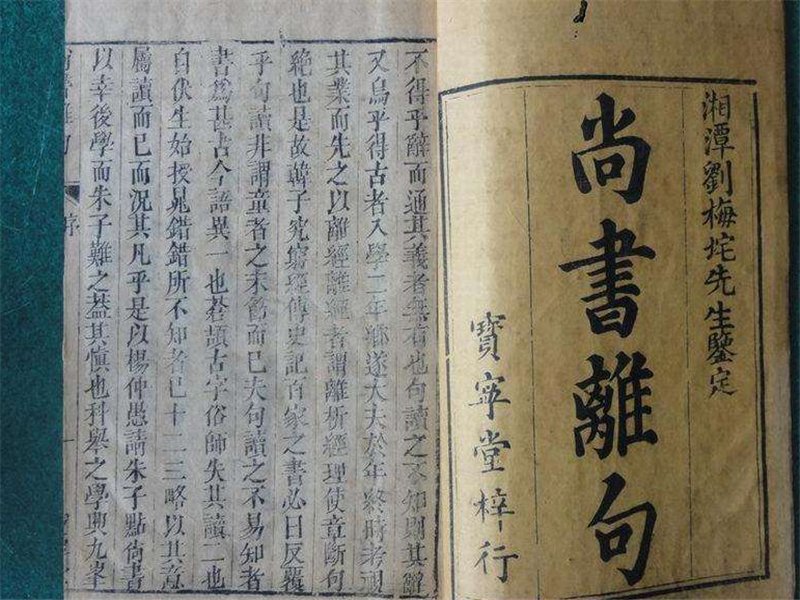 湘潭劉梅垞先生鑒定
尚書離句
寶寧堂梓行
不得乎辭而通其義者無有也句讀之不知則其辭
又烏乎得古者入學二年鄉遂大夫於年終時考視
其業而先之以離經離經者謂離析經理使章斷句
絕也是故韓子究窮經傳史記百家之書必曰反覆
乎句讀非謂童者之末篇而已夫句讀之不易知者
書為甚古今語異一也蒼頡古字俗師失其讀二也
自伏生始授晁錯錯所不知者已十二三略以其意
屬讀而已而況其凡乎是以楊仲愚請朱子點尚書
以幸後學而朱子難之蓋其慎也科舉之學興九峯
尚書離句
序
一